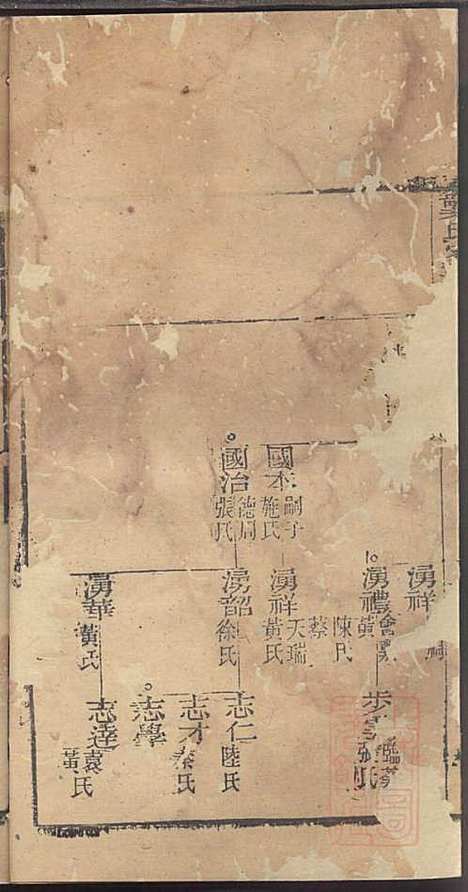 龔氏
國本
嗣子
施氏
國治
德周
張氏
湧祥
湧禮
黃
陳氏
蔡
湧祥
天瑞
黃氏
湧韶
徐氏
湧華
黃氏
步
臨芳
張氏
志仁
陸氏
志才
秦氏
志學
志達
袁氏
黃氏